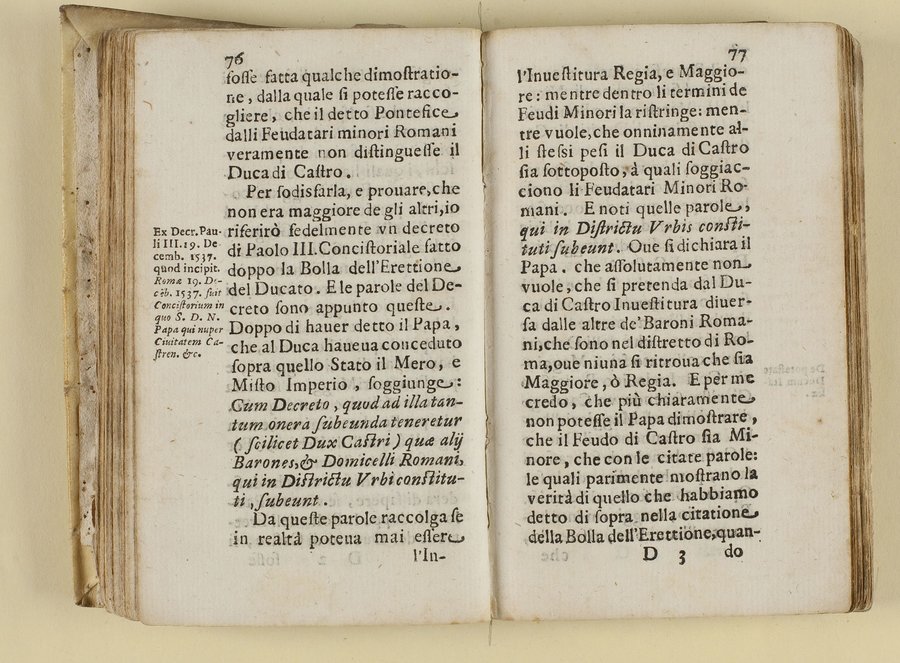 76
foſſe fatta qualche dimoſtratio-
ne, dalla quale ſi poteſſe racco-
gliere, che il detto Pontefice
dalli Feudatari minori Romani
veramente non diſtingueſſe il
Duca di Caſtro.
Per ſodisfarla, e prouare, che
non era maggiore de gli altri, io
riferirò fedelmente vn decreto
di Paolo III. Conciſtoriale fatto
doppo la Bolla dell'Erettione
del Ducato. E le parole del De-
creto ſono appunto queſte.
Doppo di hauer detto il Papa,
che al Duca haueua conceduto
ſopra quello Stato il Mero, e
Miſto Imperio, ſoggiunge:
Cum Decreto, quod ad illa tan-
tum onera ſubeunda teneretur
(ſcilicet Dux Caſtri) quæ alij
Barones, & Domicelli Romani,
qui in Diſtrictu Vrbi conſtitu-
ti, ſubeunt.
Da queſte parole raccolga ſe
in realtà poteua mai eſſere
l'In-
Ex Decr. Pau-
li III. 19. De
cemb. 1537.
quod incipit.
Romæ 19. De-
cẽb. 1537. fuit
Conciſtorium in
quo S. D. N.
Papa qui nuper
Ciuitatem Ca-
ſtren. &c.
77
l'Inueſtitura Regia, e Maggio-
re: mentre dentro li termini de
Feudi Minori la riſtringe: men-
tre vuole, che onninamente al-
li ſteſsi peſi il Duca di Caſtro
ſia ſottopoſto, à quali ſoggiac-
ciono li Feudatari Minori Ro-
mani. E noti quelle parole,
qui in Diſtrictu Vrbis conſti-
tuti ſubeunt. Oue ſi dichiara il
Papa. che aſſolutamente non
vuole, che ſi pretenda dal Du-
ca di Caſtro Inueſtitura diuer-
ſa dalle altre de' Baroni Roma-
ni, che ſono nel diſtretto di Ro-
ma, oue niuna ſi ritroua che ſia
Maggiore, ò Regia. E per me
credo, che più chiaramente
non poteſſe il Papa dimoſtrare,
che il Feudo di Caſtro ſia Mi-
nore, che con le citate parole:
le quali parimente moſtrano la
verità di quello che habbiamo
detto di ſopra nella citatione
della Bolla dell'Erettione, quan-
D 3 do